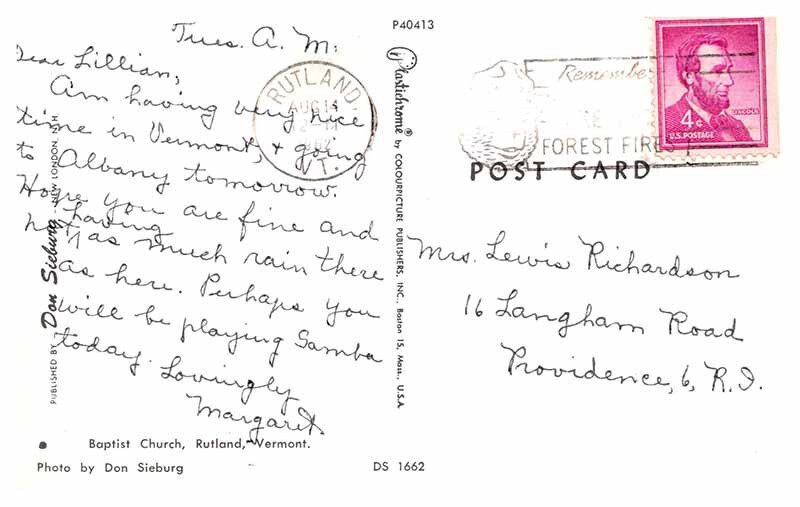 P40413
Tues. A. M.
Dear Lillian,
Am having very nice
time in Vermont, & going
to Albany tomorrow.
Hope you are fine and
not having as much rain there
as here. Perhaps you
will be playing Samba
today. Lovingly
Margaret.
PUBLISHED BY Don Sieburg - NEW LONDON, N.H.
Baptist Church, Rutland, Vermont.
Photo by Don Sieburg
DS 1662
Plastichrome ® by COLOURPICTURE PUBLISHERS, INC., Boston 15, Mass., U.S.A.
RUTLAND
AUG 14
VT.
Remember
FOREST FIRES
LINCOLN
4¢
U.S. POSTAGE
POST CARD
Mrs. Lewis Richardson
16 Langham Road
Providence, 6, R.I.